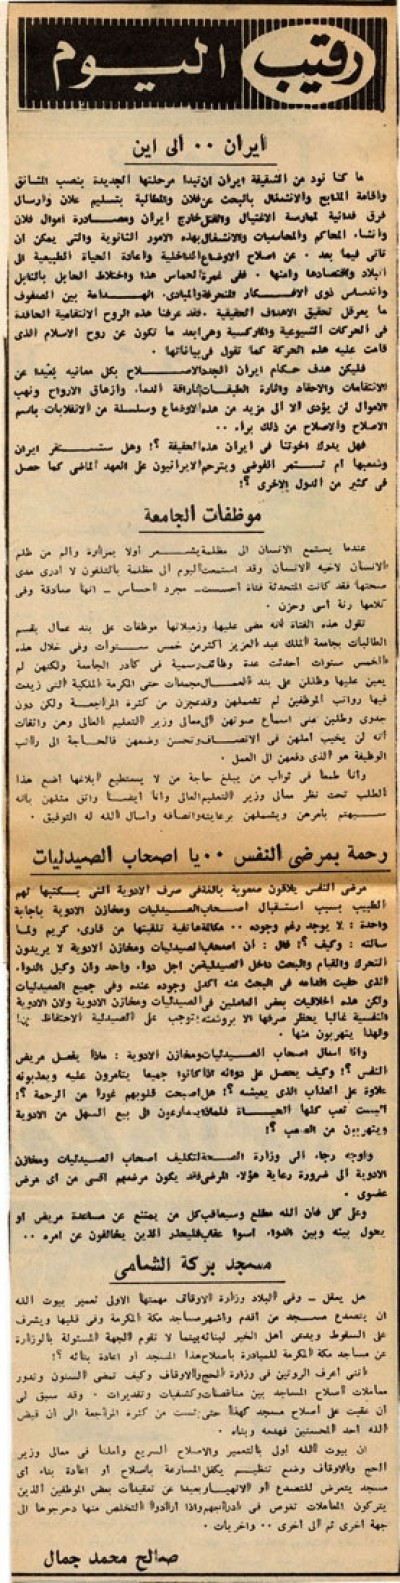 رقيب اليوم
ايران ٠٠ الى اين
ما كنا نود من الشقيقة ايران ان تبدا مرحلتها الجديدة بنصب المشانق
واقامة المذابح والانشغال بالبحث عن فلان والمطالبة بتسليم علان وارسال
فرق فدائية لممارسة الاغتيال والقتل خارج ايران ومصادرة اموال فلان
وانشاء المحاكم والمحاسبات والانشغال بهذه الامور الثانوية والتى يمكن ان
تاتى فيما بعد ٠ عن اصلاح الاوضاع الداخلية واعادة الحياة الطبيعية الى
البلاد واقتصادها وامنها ٠ ففى غمرة الحماس هذا واختلاط الحابل بالنابل
واندساس ذوى الافكار المنحرفة والمبادىء الهدامة بين الصفوف
ما يعرقل تحقيق الاهداف الحقيقية ٠ فقد عرفنا هذه الروح الانتقامية الحاقدة
فى الحركات الشيوعية والماركسية وهى ابعد ما تكون عن روح الاسلام الذى
قامت عليه هذه الحركة كما تقول فى بياناتها ٠
فليكن هدف حكام ايران الجدد الاصلاح بكل معانيه بعيدا عن
الانتقامات والاحقاد واثارة الطبقات واراقة الدماء وازهاق الارواح ونهب
الاموال لن يؤدى الا الى مزيد من هذه الاوضاع وسلسلة من الانقلابات باسم
الاصلاح والاصلاح من ذلك براء ٠٠
فهل يدرك اخوتنا فى ايران هذه الحقيقة ؟! وهل ستستقر ايران
وشعبها ام تستمر الفوضى ويترحم الايرانيون على العهد الماضى كما حصل
فى كثير من الدول الاخرى ؟!
موظفات الجامعة
عندما يستمع الانسان الى مظلمة يشعر اولا بمرارة والم من ظلم
الانسان لاخيه الانسان وقد استمعت اليوم الى مظلمة بالتلفون لا ادرى مدى
صحتها فقد كانت المتحدثة فتاة احسست ـ مجرد احساس ـ انها صادقة وفى
كلامها رنة أسى وحزن ٠
تقول هذه الفتاة أنه مضى عليها وزميلاتها موظفات على بند عمال بقسم
الطالبات بجامعة الملك عبد العزيز أكثر من خمس سنوات وفى خلال هذه
الخمس سنوات أحدثت عدة وظائف رسمية فى كادر الجامعة ولكنهن لم
يعين عليها وظللن على بند العمال مجمدات حتى المكرمة الملكية التى زيدت
فيها رواتب الموظفين لم تشملهن وقد عجزن من كثرة المراجعة ولكن دون
جدوى وطلبن منى اسماع صوتهن الى معالى وزير التعليم العالى وهن واثقات
أنه لن يخيب أملهن فى الانصاف وتحسن وضعهن فالحاجة الى راتب
الوظيفة هو الذى دفعهن الى العمل ٠
وأنا طمعا فى ثواب من يبلغ حاجة من لا يستطيع ابلاغها أضع هذا
الطلب تحت نظر معالى وزير التعليم العالى وأنا أيضا واثق مثلهن بأنه
سيهتم بأمرهن ويشملهن برعايته وانصافه وأسأل الله له التوفيق ٠
رحمة بمرضى النفس ٠٠ يا اصحاب الصيدليات
مرضى النفس يلاقون صعوبة بالغة فى صرف الادوية التى يكتبها لهم
الطبيب بسبب استقبال اصحاب الصيدليات ومخازن الادوية باجابة
واحدة : لا يوجد رغم وجوده ٠٠ مكالمة هاتفية تلقيتها من قارىء كريم ولما
سالته : وكيف ؟! قال : ان اصحاب الصيدليات ومخازن الادوية لا يريدون
التحرك والقيام والبحث داخل الصيدلية من اجل دواء واحد وان وكيل الدواء
الذى حفيت اقدامه فى البحث عنه اكد وجوده عنده وفى جميع الصيدليات
ولكن هذه اخلاقيات بعض العاملين فى الصيدليات ومخازن الادوية ولان الادوية
النفسية غالبا يحظر صرفها الا بروشتة توجب على الصيدلية الاحتفاظ بها
ولهذا يتهربون منها ٠
وانا اسال اصحاب الصيدليات ومخازن الادوية : ماذا يفعل مريض
النفس ؟! وكيف يحصل على دوائه اذا كانوا جميعا يتآمرون عليه ويعذبونه
علاوة على العذاب الذى يعيشه ؟! هل اصبحت قلوبهم غورا من الرحمة ؟!
اليست تعب كلها الحياة فلماذا يسارعون الى بيع السهل من الادوية
ويتهربون من الصعب ؟!
واوجه رجاء الى وزارة الصحة لتكليف اصحاب الصيدليات ومخازن
الادوية الى ضرورة رعاية هؤلاء المرضى فقد يكون مرضهم اقسى من اى مرض
عضوى ٠
وعلى كل فان الله مطلع وسيعاقب كل من يمتنع عن مساعدة مريض او
يحول بينه وبين الدواء اسوا عقاب فليحذر الذين يخالفون عن امره ٠٠
مسجد بركة الشامى
هل يعقل ـ وفى البلاد وزارة الاوقاف مهمتها الاولى تعمير بيوت الله
ان يتصدع مسجد من أقدم وأشهر مساجد مكة المكرمة وفى قلبها ويشرف
على السقوط ويدعى أهل الخير لبنائه بينما لا تقوم الجهة المسئولة بالوزارة
عن مساجد مكة المكرمة للمبادرة باصلاح هذا المسجد أو اعادة بنائه ؟!
اننى أعرف الروتين فى وزارة الحج والاوقاف وكيف تمضى السنون وتدور
معاملات اصلاح المساجد بين مناقصات وكشفيات وتقديرات ٠ وقد سبق لى
ان عقبت على أصلاح مسجد كهذا حتى يئست من كثرة المراجعة الى ان قيض
الله أحد المحسنين فهدمه وبناه ٠
ان بيوت الله أولى بالتعمير والاصلاح السريع وأملنا فى معالى وزير
الحج والاوقاف وضع تنظيم يكفل المسارعة باصلاح أو اعادة بناء أى
مسجد يتعرض للتصدع أو الانهيار بعيدا عن تعقيدات بعض الموظفين الذين
يتركون المعاملات تغوص فى أدراجهم واذا أرادوا التخلص منها دحرجوها الى
جهة أخرى ثم الى أخرى ٠٠ وأخريات ٠
صالح محمد جمال